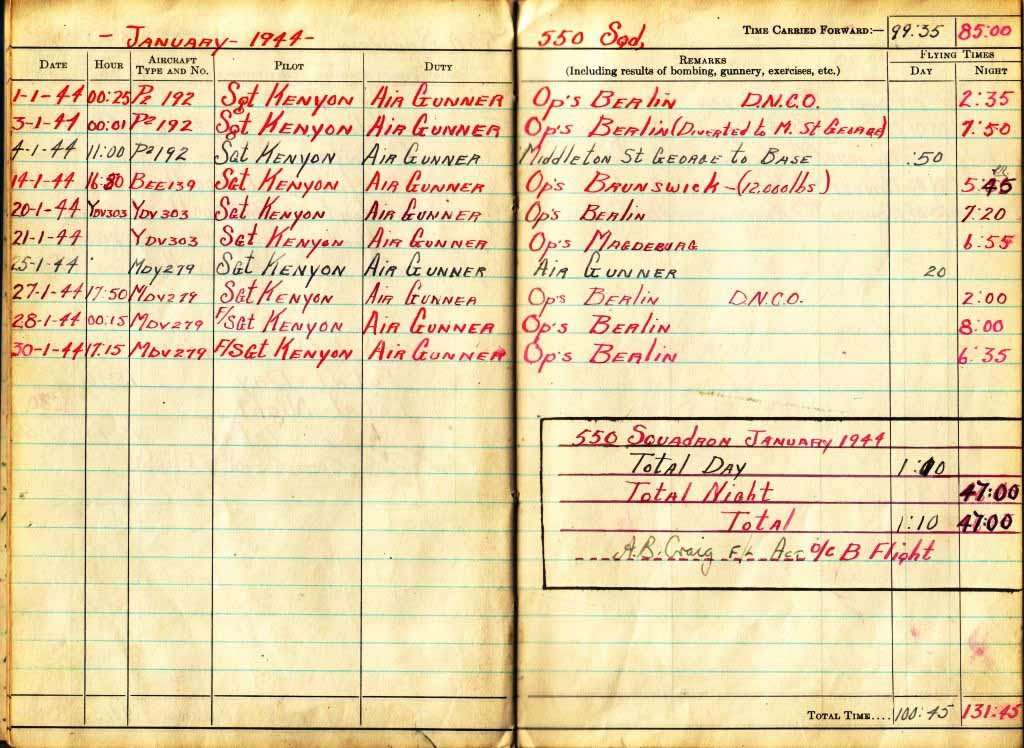 - JANUARY - 1944 - 550 Sqd, TIME CARRIED FORWARD:— 99:35 85:00
DATE HOUR AIRCRAFT TYPE AND NO. PILOT DUTY REMARKS (Including results of bombing, gunnery, exercises, etc.) FLYING TIMES DAY NIGHT
1-1-44 00:25 P2 192 Sgt KENYON AIR GUNNER Op's BERlin D.N.C.O. 2:35
3-1-44 00:01 P2 192 Sgt KENYON AIR GUNNER Op's BERlin (DIVERTED to M. St GEORGE) 7:50
4-1-44 11:00 P2 192 Sgt KENYON AIR GUNNER MIDDLETON St GEORGE to BASE :50
14-1-44 BEE139 SGt KENYON AIR GUNNER Op's BRUNSWICK - (12,000lbs) 5:45
20-1-44 YDV303 YDV303 SGt KENYON AIR GUNNER Op's BERlin 7:20
21-1-44 YDV303 SGt KENYON AIR GUNNER Op's MAGDEBURG 6:55
25-1-44 MDV279 SGt KENYON AIR GUNNER AIR GUNNER 20
27-1-44 17:50 MDV279 SGt KENYON AIR GUNNER Op's BERlin D.N.C.O. 2:00
28-1-44 00:15 MDV279 F/SGt KENYON AIR GUNNER Op's BERlin 8:00
30-1-44 17:15 MDV279 F/SGt KENYON AIR GUNNER Op's BERlin 6:35
550 SQUADRON JANUARY 1944
TOTAL DAY 1:10
TOTAL NIGHT 47:00
TOTAL 1:10 47:00
A.B. Craig F/L O/C B Flight
TOTAL TIME.... 100:45 131:45